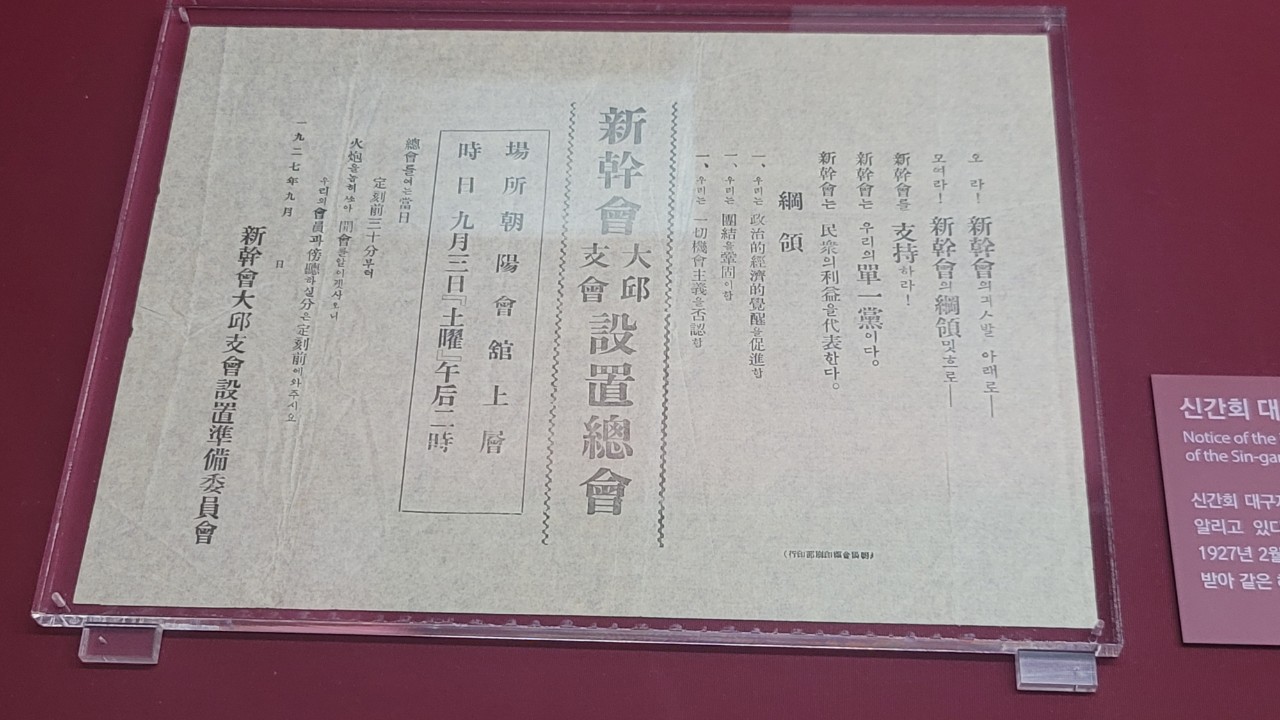 오 라! 新幹會의 긔ㅅ발 아래로—
모여라! 新幹會의 綱領밋흐로—
新幹會를 支持하라!
新幹會는 우리의 單一黨이다。
新幹會는 民衆의 利益을 代表한다。
綱領
一、우리는 政治的經濟的覺醒을 促進함
一、우리는 團結을 鞏固이함
一、우리는 一切機會主義을 否認함
新幹會大邱支會設置總會
場所 朝陽會舘上層
時日 九月三日『土曜』午后二時
總會를여는當日
定刻前三十分부터
火炮을놉히쏘아 開會를알이겟사오니
우리의會員과傍聽하실분은定刻前에와주시요
一九二七年九月 日
新幹會大邱支會設置準備委員會
신간회 대
Notice of the
of the Sin-ga
신간회 대구
알리고 있다
1927년 2월
받아 같은